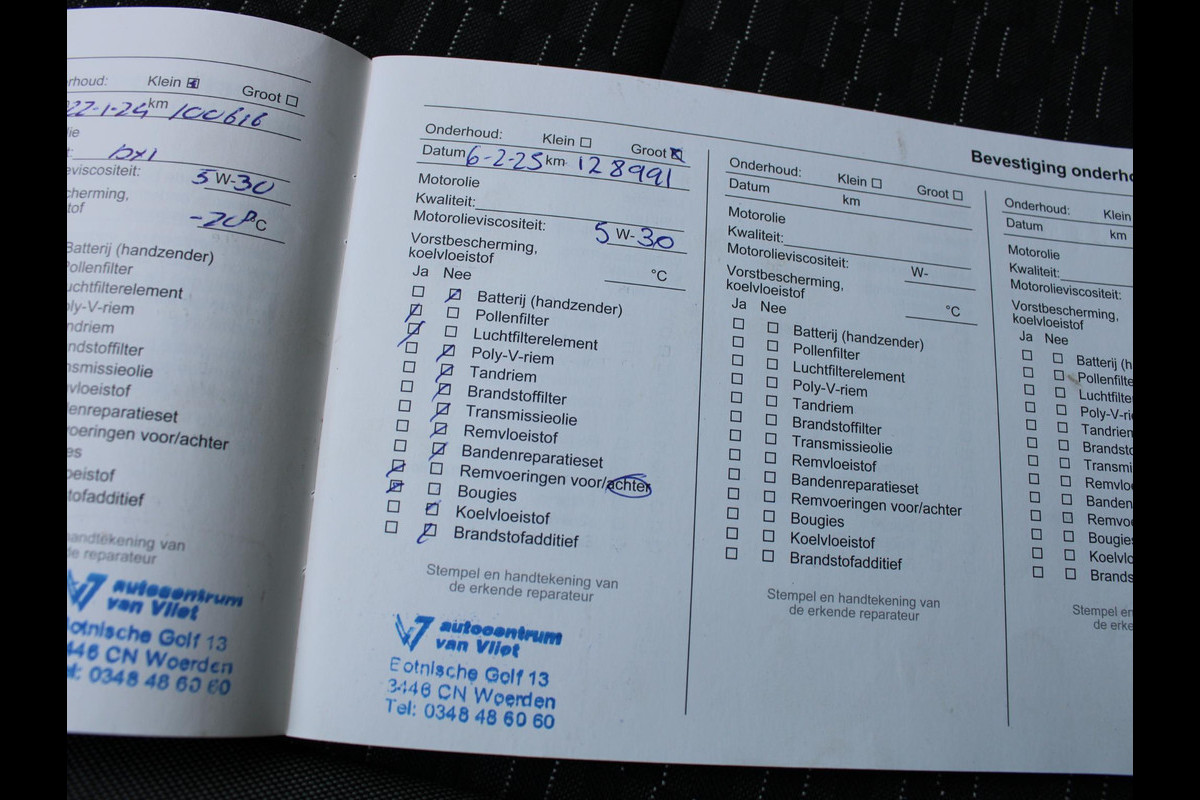 rhoud: Klein Groot
22-1-24 km 100616
lie
t: DX1
eviscositeit: 5 W-30
cherming,
tof -20 °C
Batterij (handzender)
Pollenfilter
uchtfilterelement
oly-V-riem
ndriem
ndstoffilter
nsmissieolie
vloeistof
ndenreparatieset
voeringen voor/achter
es
oeistof
tofadditief
andtekening van
de erkende reparateur
autocentrum
van Vliet
otnische Golf 13
446 CN Woerden
el: 0348 48 60 60
Onderhoud: Klein Groot
Datum 6-2-25 km 128991
Motorolie
Kwaliteit:
Motorolieviscositeit: 5 W-30
Vorstbescherming,
koelvloeistof °C
Ja Nee
Batterij (handzender)
Pollenfilter
Luchtfilterelement
Poly-V-riem
Tandriem
Brandstoffilter
Transmissieolie
Remvloeistof
Bandenreparatieset
Remvoeringen voor/achter
Bougies
Koelvloeistof
Brandstofadditief
Stempel en handtekening van
de erkende reparateur
autocentrum
van Vliet
Botnische Golf 13
3446 CN Woerden
Tel: 0348 48 60 60
Bevestiging onderho
Onderhoud: Klein Groot
Datum km
Motorolie
Kwaliteit:
Motorolieviscositeit: W-
Vorstbescherming,
koelvloeistof °C
Ja Nee
Batterij (handzender)
Pollenfilter
Luchtfilterelement
Poly-V-riem
Tandriem
Brandstoffilter
Transmissieolie
Remvloeistof
Bandenreparatieset
Remvoeringen voor/achter
Bougies
Koelvloeistof
Brandstofadditief
Stempel en handtekening van
de erkende reparateur
Onderhoud: Klein
Datum km
Motorolie
Kwaliteit:
Motorolieviscositeit:
Vorstbescherming,
koelvloeistof
Ja Nee
Batterij (h
Pollenfilte
Luchtfilte
Poly-V-rie
Tandriem
Brandsto
Transmi
Remvloe
Banden
Remvoe
Bougies
Koelvlo
Brands
Stempel en
de erke